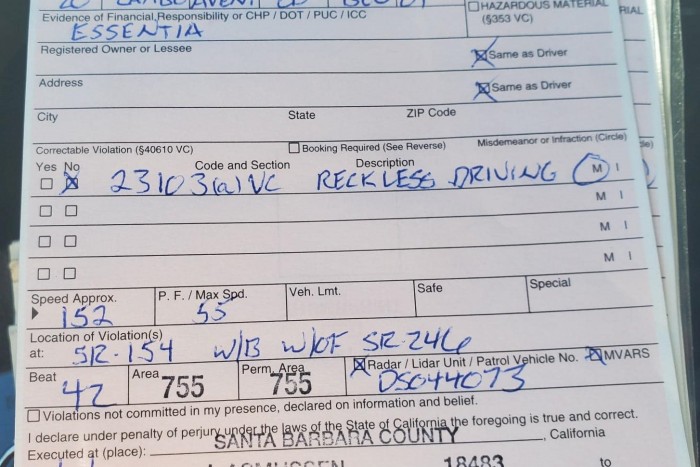 HAZARDOUS MATERIAL
(§353 VC)
RIAL
Evidence of Financial Responsibility or CHP / DOT / PUC / ICC
ESSENTIA
Registered Owner or Lessee
Same as Driver
Address
Same as Driver
City State ZIP Code
Correctable Violation (§40610 VC) Booking Required (See Reverse) Misdemeanor or Infraction (Circle)
Yes No Code and Section Description
23103(a) VC RECKLESS DRIVING M I
M I
M I
M I
Speed Approx. P. F. / Max Spd. Veh. Lmt. Safe Special
152 55
Location of Violation(s)
at: SR-154 W/B W/OF SR-246
Beat Area Perm. Area Radar / Lidar Unit / Patrol Vehicle No. MVARS
42 755 755 DS044073
Violations not committed in my presence, declared on information and belief.
I declare under penalty of perjury under the laws of the State of California the foregoing is true and correct.
Executed at (place): SANTA BARBARA COUNTY , California
18483 to